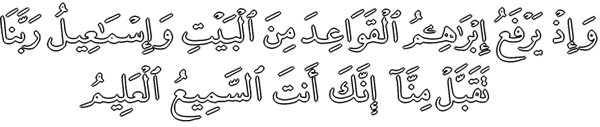 وَإِذْ يَرْفَعُ إِبْرَٰهِـۧمُ ٱلْقَوَاعِدَ مِنَ ٱلْبَيْتِ وَإِسْمَـٰعِيلُ رَبَّنَا
تَقَبَّلْ مِنَّآ إِنَّكَ أَنتَ ٱلسَّمِيعُ ٱلْعَلِيمُ